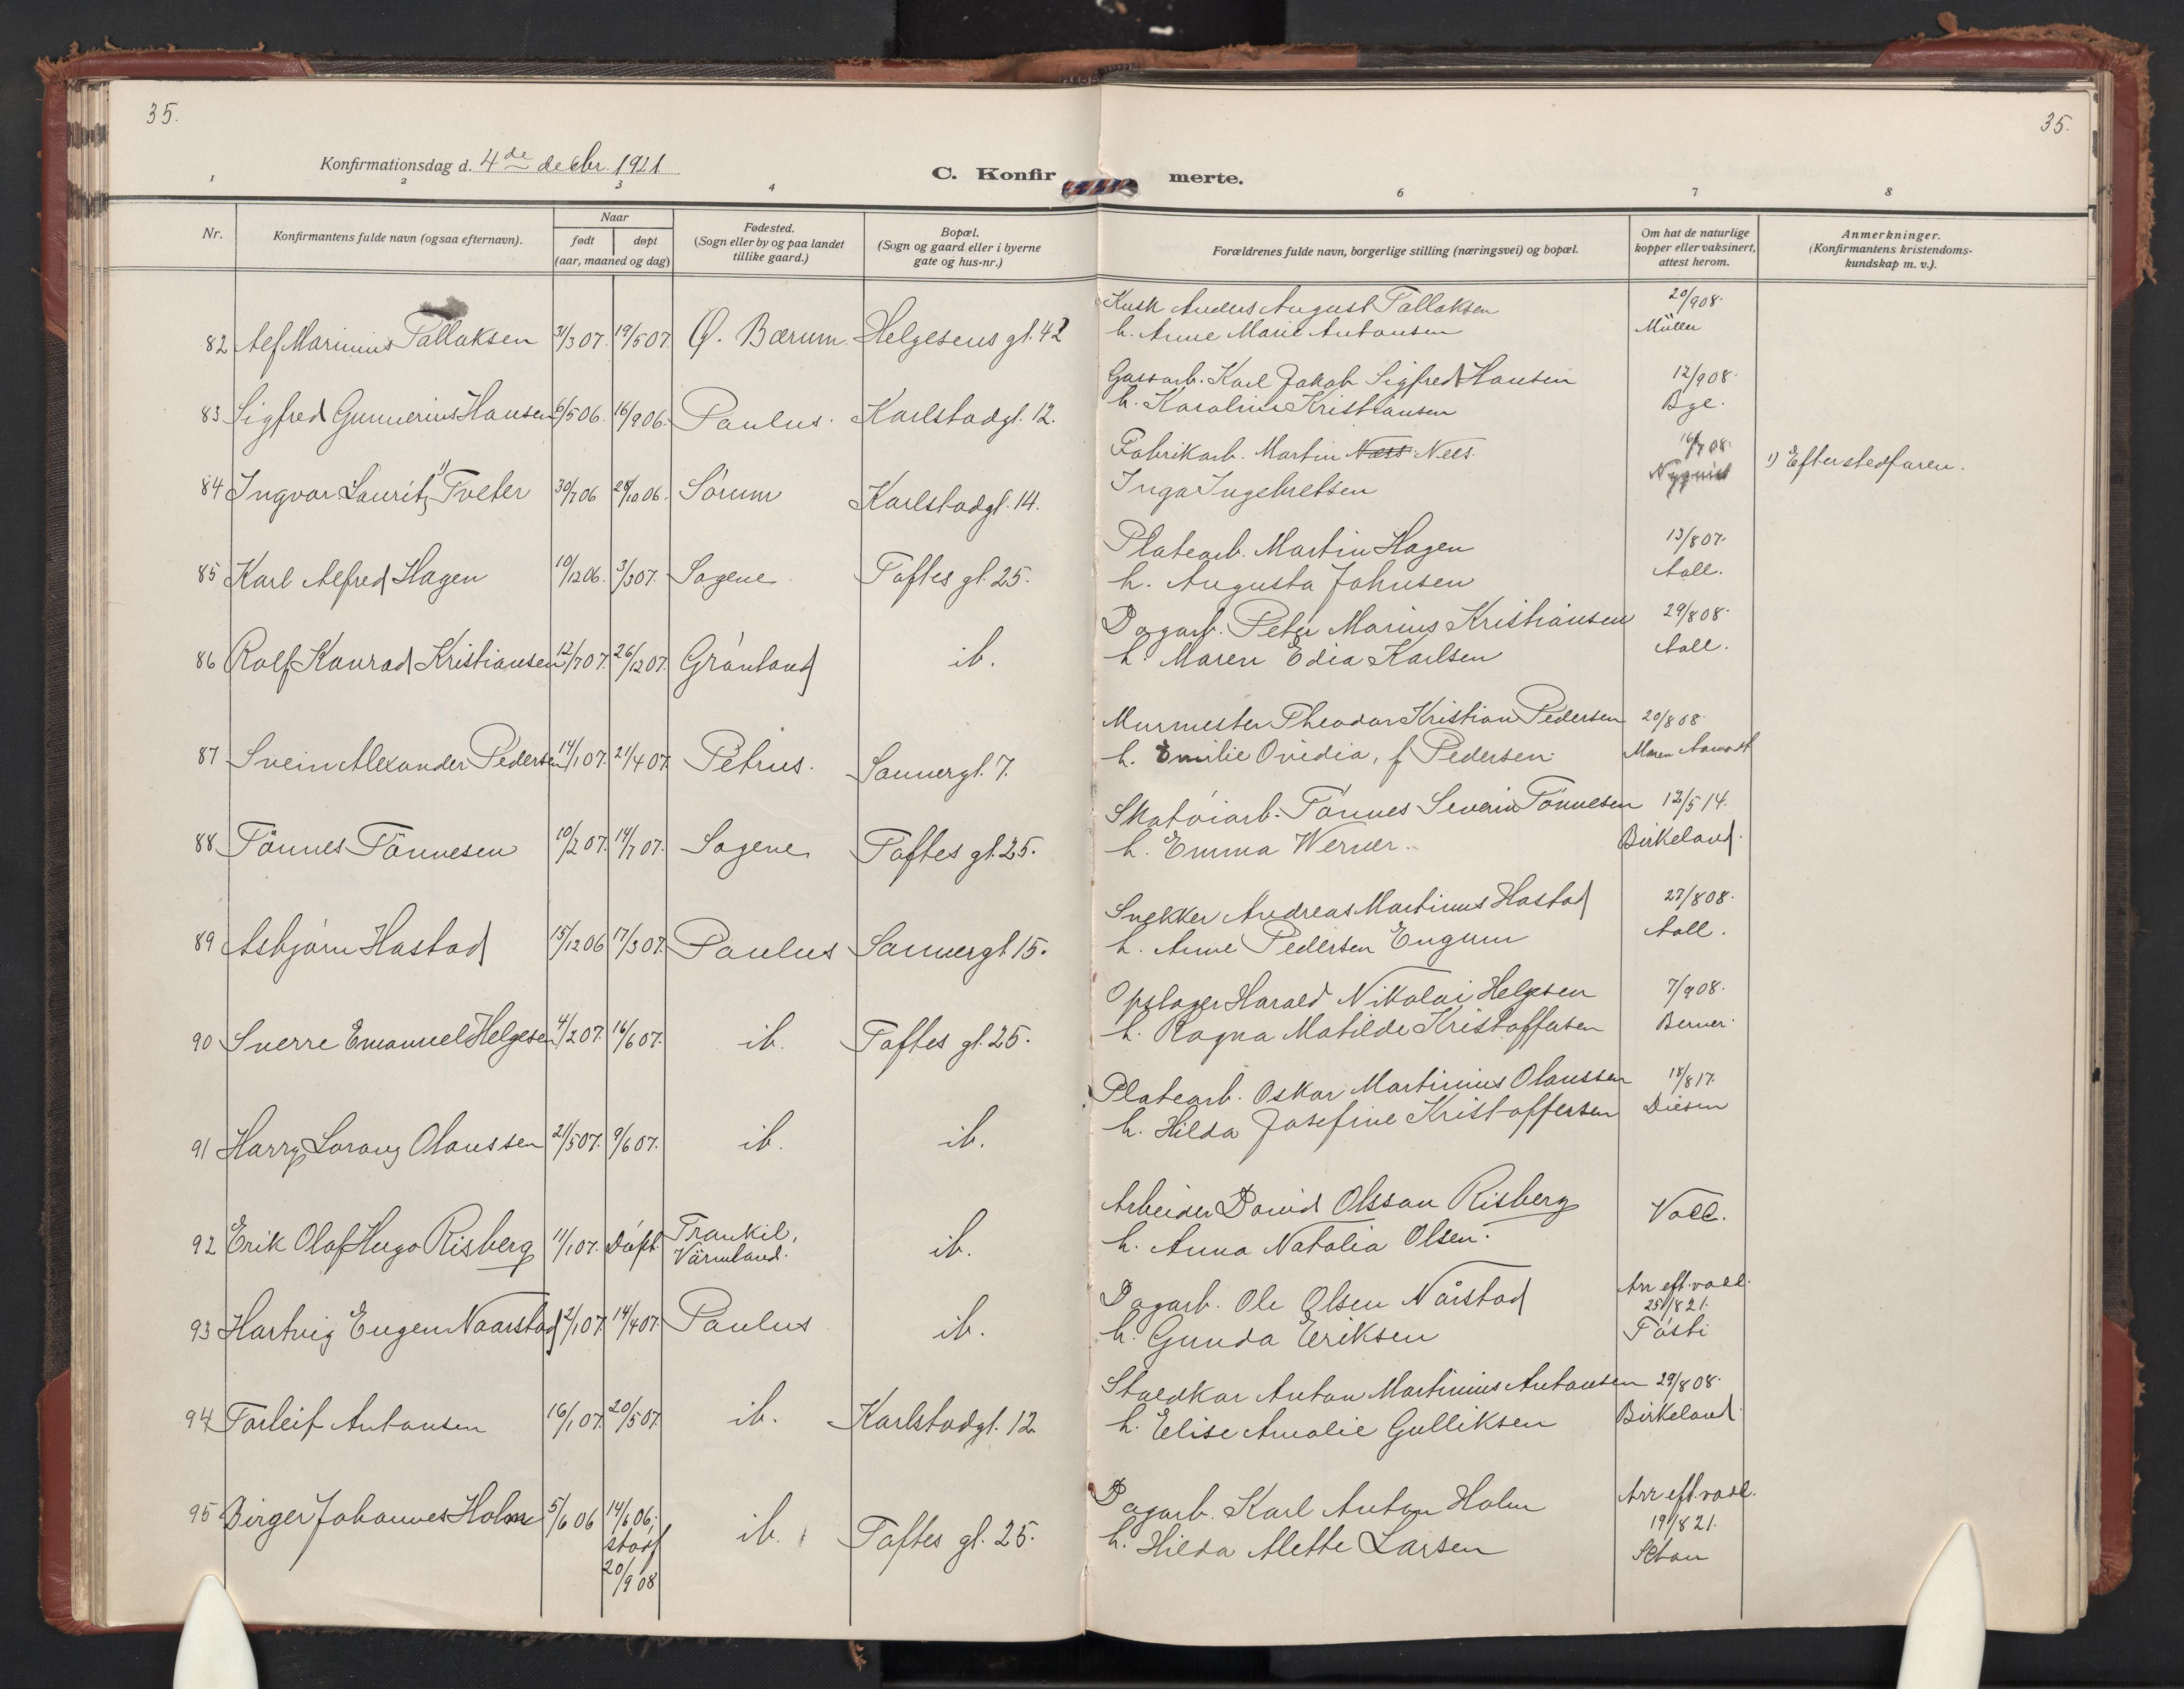 35.
35.
Konfirmationsdag d. 4de decbr 1921
C. Konfir merte.
1 2 3 4 6 7 8
Nr.
Konfirmantens fulde navn (ogsaa efternavn).
Naar
født døpt
(aar, maaned og dag)
Fødested.
(Sogn eller by og paa landet
tillike gaard.)
Bopæl.
(Sogn og gaard eller i byerne
gate og hus-nr.)
Forældrenes fulde navn, borgerlige stilling (næringsvei) og bopæl.
Om hat de naturlige
kopper eller vaksinert,
attest herom.
Anmerkninger.
(Konfirmantens kristendoms-
kundskap m. v.).
Kusk Anders August Tallaksen 20/9 08.
82 Alf Marinius Tallaksen 31/3 07. 19/5 07. Ø. Bærum. Helgesens gt. 42 h. Anne Marie Antonsen Müller
Gassarb. Karl Jakob Sigfred Hansen 12/9 08.
83 Sigfred Gunnerius Hansen 6/5 06. 16/9 06. Paulus. Karlstadgt. 12. h. Karoline Kristiansen Bge.
Fabrikarb. Martin Næss Nees. 16/7 08.
84 Ingvar Lauritz 1) Tveter 30/7 06 28/10 06. Sörum Karlstadgt. 14. Inga Ingebretsen 1) Efter stedfaren.
Platearb. Martin Hagen 13/8 07.
85 Karl Alfred Hagen 10/12 06. 3/3 07. Sagene. Toftes gt. 25. h. Augusta Johnsen Aall.
Dagarb. Peter Marius Kristiansen 29/8 08.
86 Rolf Konrad Kristiansen 12/7 07. 26/12 07. Grönland ib. h. Maren Edia Karlsen Aall.
Murmester Theodor Kristian Pedersen 20/8 08.
87 Svein Alexander Pedersen 14/1 07. 21/4 07. Petrus. Sannergt. 7. h. Emilie Ovidia, f Pedersen. Maren Aamodt
Skotöiarb. Tönnes Severin Tönnesen 12/5 14.
88 Tönnes Tönnesen 10/2 07. 14/7 07. Sagene Toftes gt. 25. h. Emma Werner. Birkeland.
Snekker Andreas Martinus Hastad 27/8 08.
89 Asbjörn Hastad 15/12 06 17/3 07. Paulus Sannergt. 15. h. Anne Pedersen Engum Aall.
Opslager Harald Nikolai Helgesen 7/9 08.
90 Sverre Emanuel Helgesen 4/2 07. 16/6 07. ib. Toftes gt. 25. h. Ragna Matilde Kristoffersen Berner.
Platearb. Oskar Martinius Olaussen 18/8 17.
91 Harry Lorang Olaussen 21/5 07. 9/6 07. ib. ib. h. Hilda Josefine Kristoffersen Diesen
Arbeider David Olsson Risberg Vacc.
92 Erik Olof Hugo Risberg 11/1 07. Döpt. Trankil, Värmland. ib. h. Anna Natalia Olsen.
Dagarb. Ole Olsen Nårstad Arr eft. vacc. 25/8 21.
93 Hartvig Eugen Naarstad 2/1 07. 14/4 07. Paulus ib. h. Gunda Eriksen Tösti
Staldkar Anton Martinius Antonsen 29/8 08.
94 Torleif Antonsen 16/1 07. 20/5 07. ib. Karlstadgt. 12. h. Elise Amalie Gulliksen Birkeland.
Dagarb. Karl Anton Holm Arr eft. vacc. 19/8 21.
95 Birger Johannes Holm 5/6 06 14/6 06; stadf 20/9 08 ib. Toftes gt. 25. h. Hilda Mette Larsen